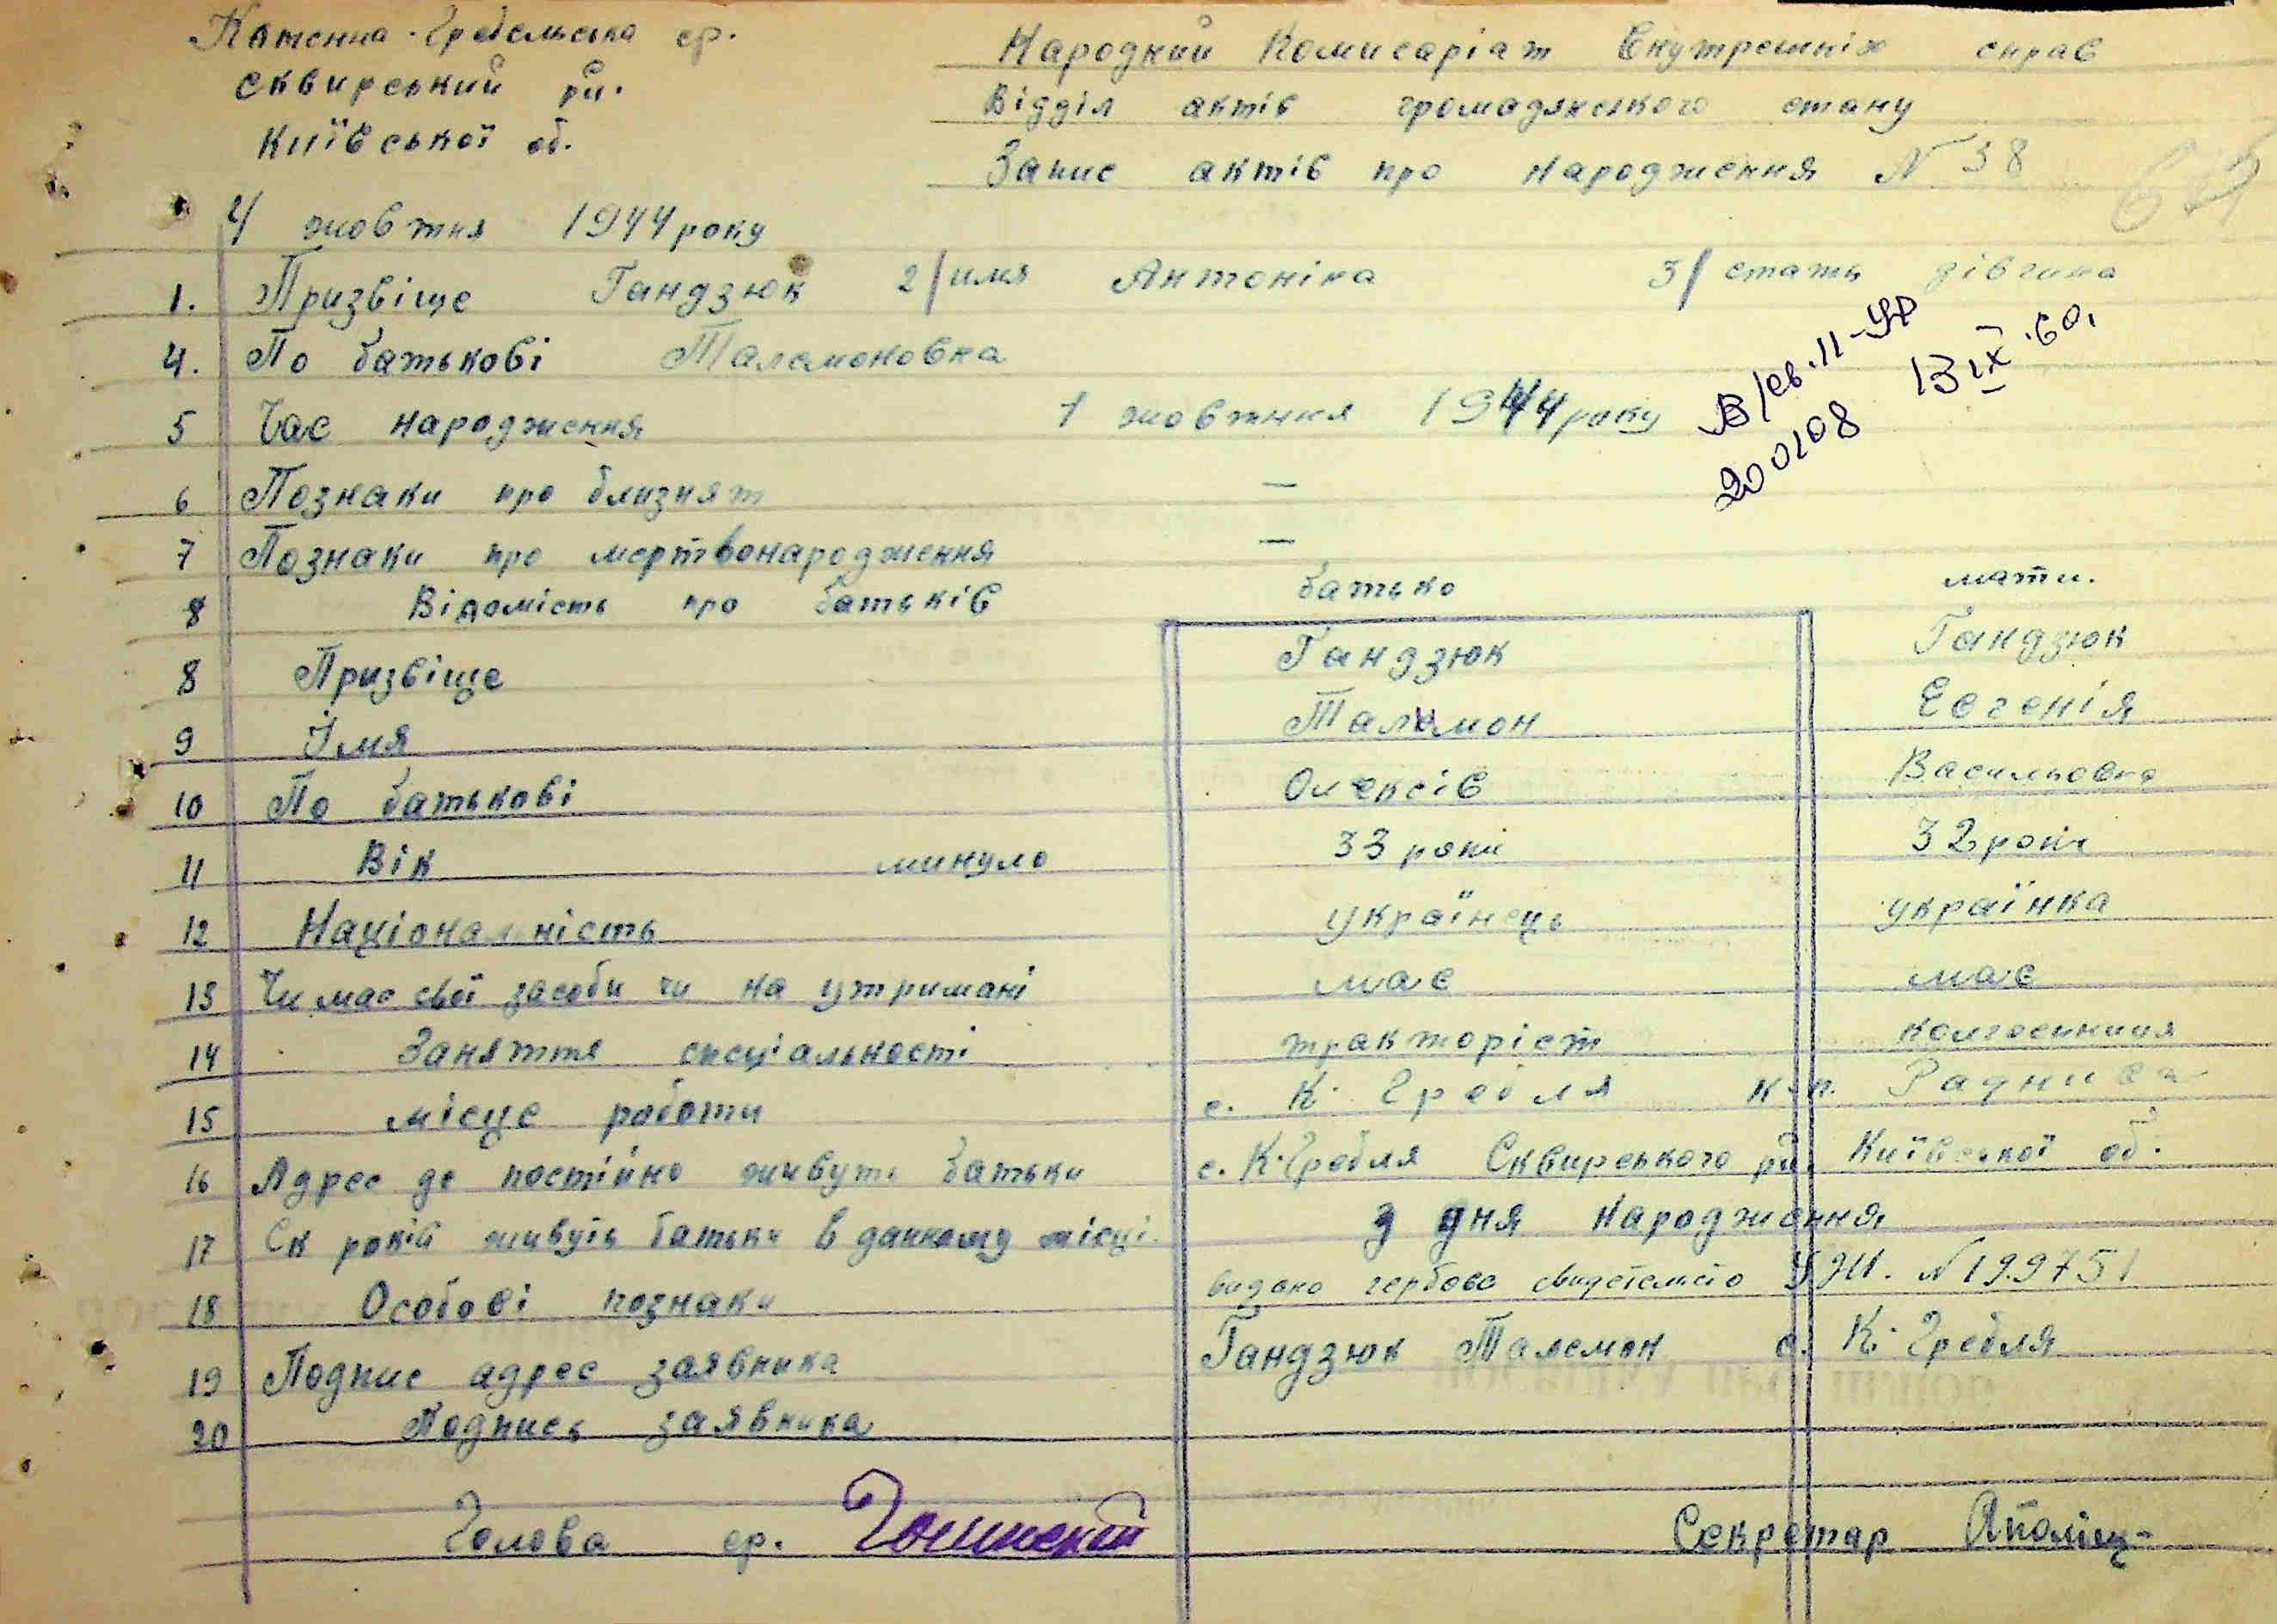 Каменна-Гребельська ср.
сквирський рн.
Київської об.
Народний Комисаріат Внутрешніх справ
Відділ актів громадянського стану
Запис актів про народження N 38
4 жовтня 1944 року
1. Призвіще Гандзюк 2/ имя Антоніна 3/ стать дівчина
4. По батькові Талемоновна
5 Час народження 1 жовтння 1944 року
В/св. II-УР
200108 13 IX .60.
6 Познаки про близнят —
7 Познаки про мертвонародження —
8 Відомість про батьків батько мати.
8 Призвіще Гандзюк Гандзюк
9 Імя Талємон Євгенія
10 По батькові Олексів Васильовна
11 Вік минуло 33 роки 32 роки
12 Національність українець українка
13 Чи має свої засоби чи на утримані має має
14 Заняття спеціальності тракторіст колгоспниця
15 місце роботи с. К. Гребля к-п.
16 Адрес де постійно живуть батьки с. К. Гребля Сквирського рн. Київської об.
17 Ск років живуть батьки в данному місці. з дня народження
18 Особові познаки видано гербове свидетельство N 199751
19 Подпис адрес заявника Гандзюк Талемон с. К. Гребля
20 Подпись заявника
Голова ср.
Секретар